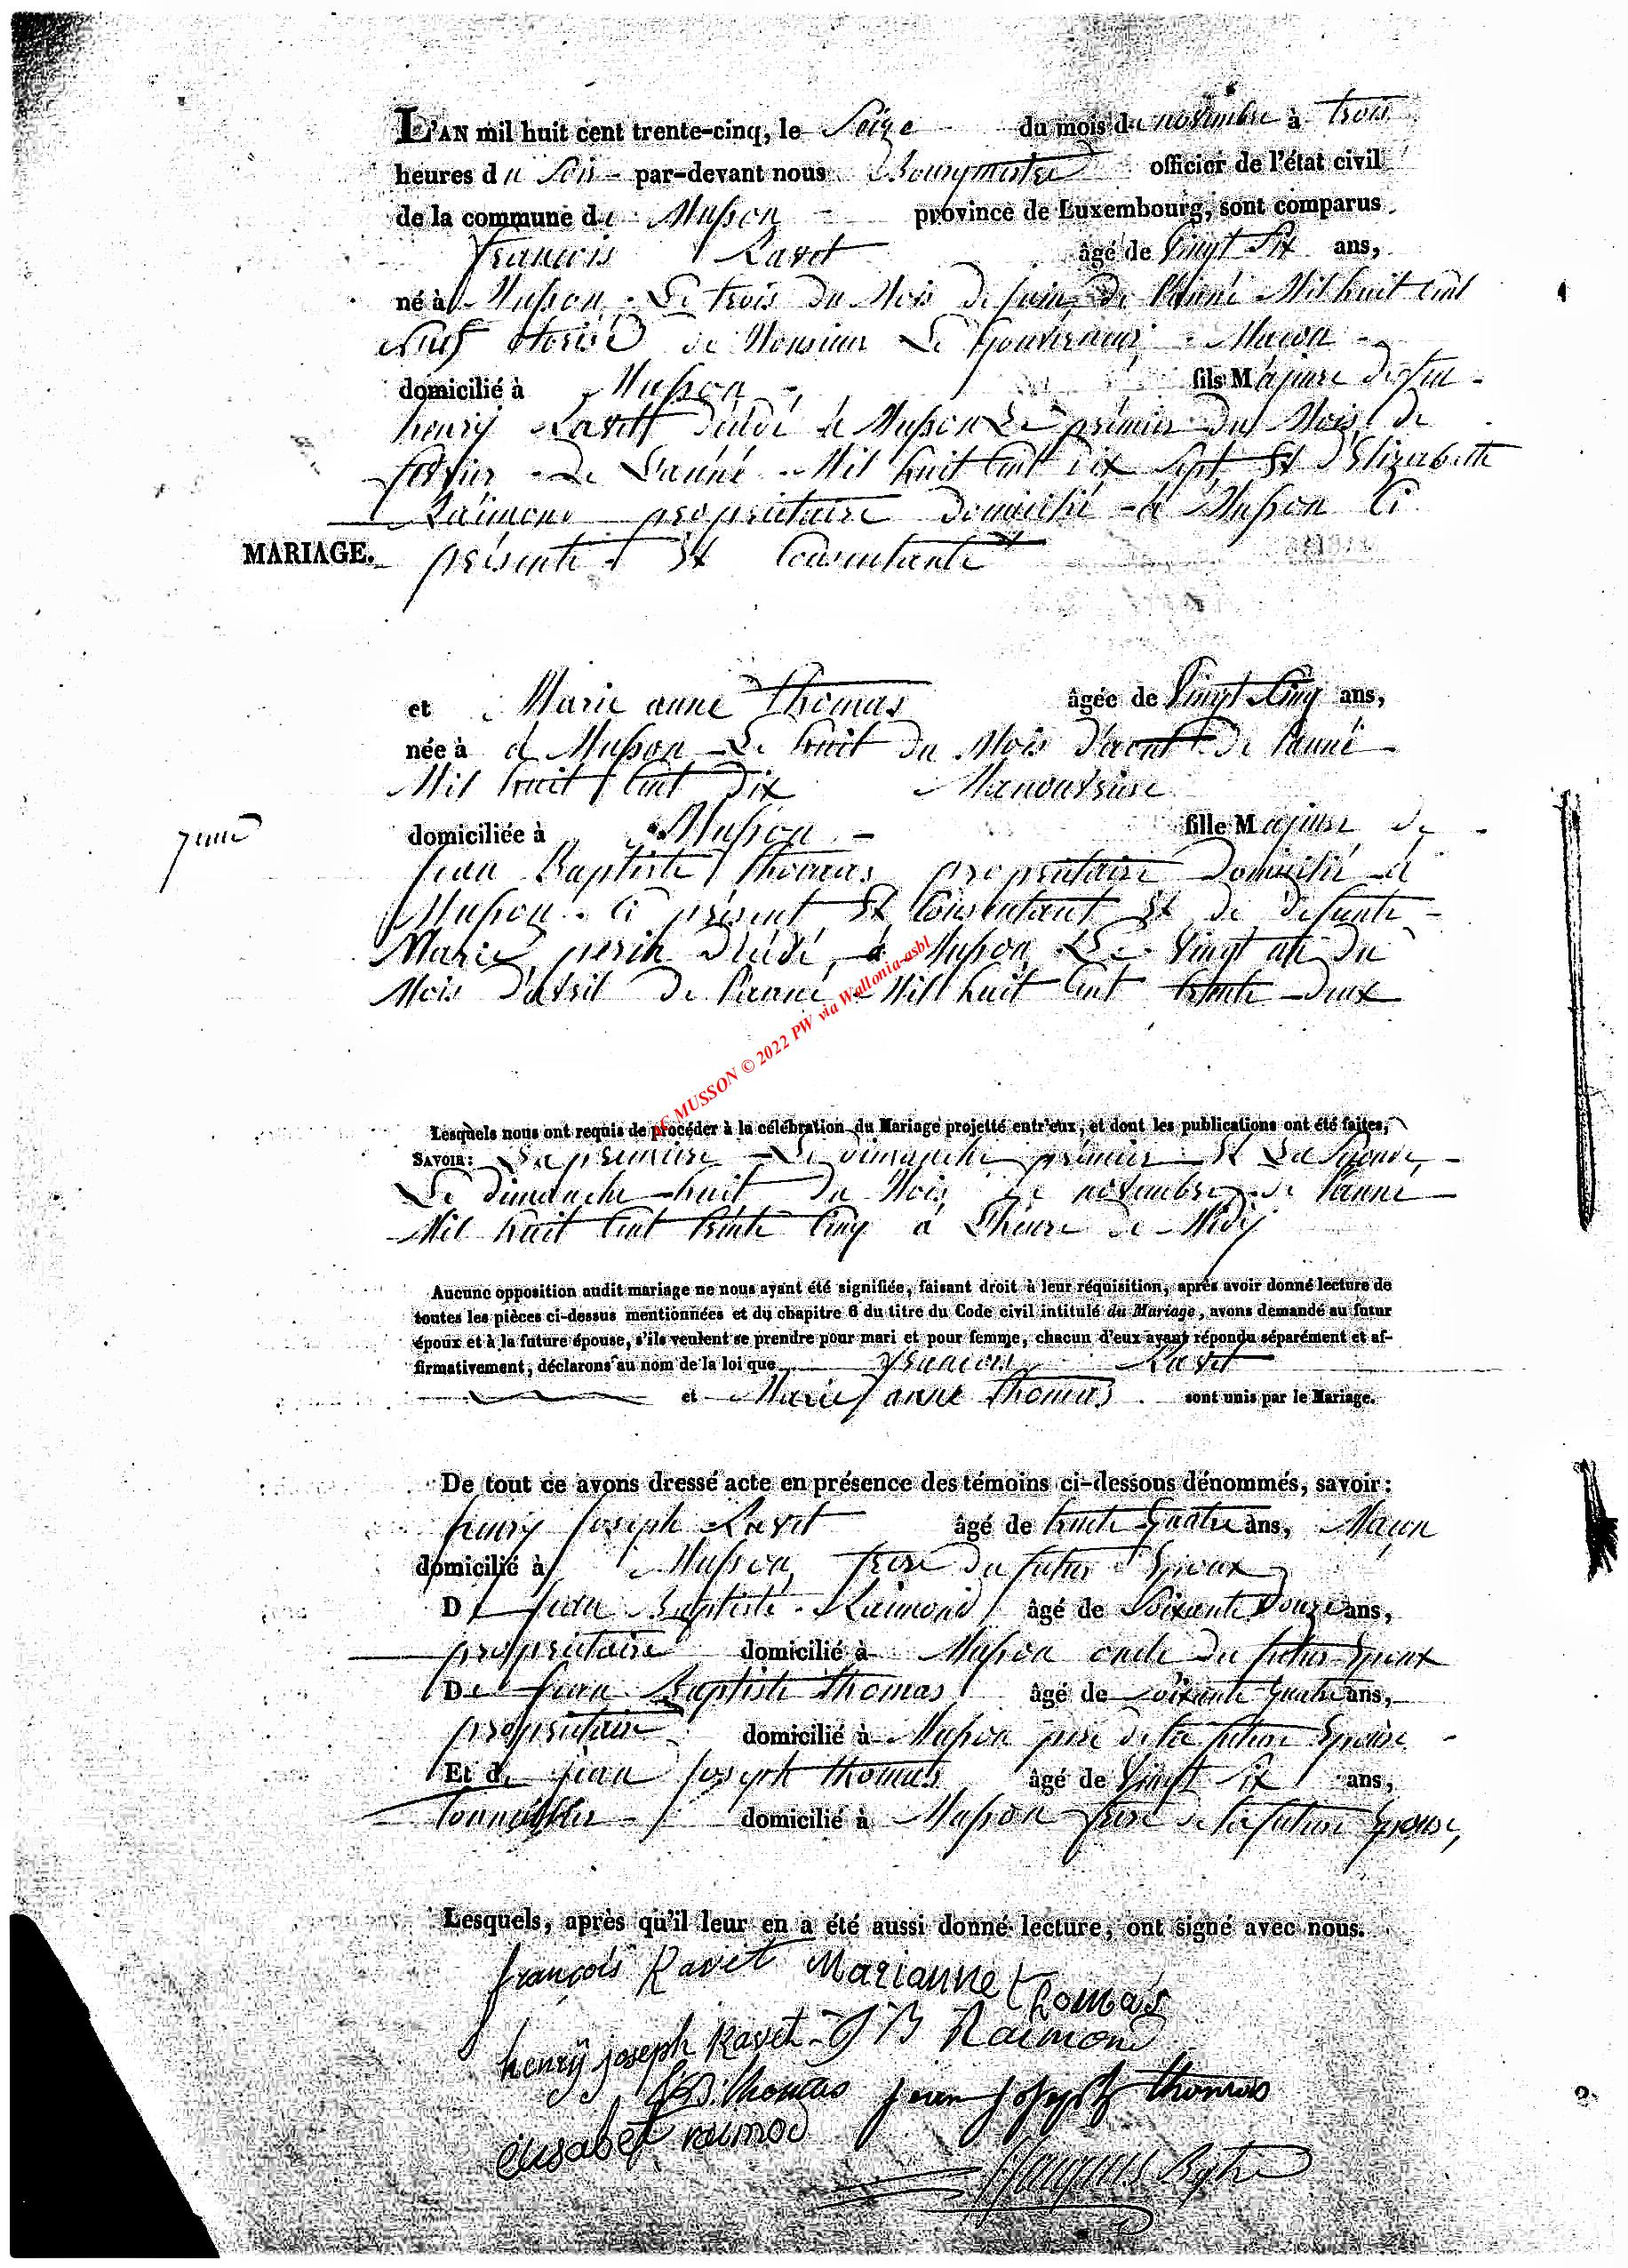 L'AN mil huit cent trente-cinq, le Seize du mois de novembre à trois
heures du Soir par-devant nous Bourgmestre officier de l'état civil
de la commune de Musson province de Luxembourg, sont comparus
francois Ravet âgé de Vingt Six ans,
né à Musson Le trois du Mois de juin de l'anné Mil huit Cent
neuf de Monsieur Le Gouverneur Macon
domicilié à Musson fils Majeure de feu
henrÿ Ravet décédé à Musson Le prémier du Mois de
fevrier de L'anné Mil huit Cent dix Sept Et d'Elizabette
Raimond propriétaire domicilié à Musson Ci
MARIAGE. présente Et Consentante
et Marie anne thomas âgée de Vingt Cinq ans,
née à à Musson Le huit du Mois d'aout de l'anné
Mil huit Cent Dix Manouvrière
domiciliée à Musson fille Majeure de
Jean Baptiste thomas propriétaire Domicilié à
Musson Ci présent Et Consentant Et de défunte
Marie perin décédé à Musson Le Vingt du
Mois d'avril de l'anné Mil huit Cent trente deux
AC MUSSON © 2022 PW via Wallonia-asbl
Lesquels nous ont requis de procéder à la célébration du Mariage projetté entr'eux, et dont les publications ont été faites,
SAVOIR: La première Le dimanche prémier Et La Seconde
Le dimanche huit du Mois de novembre de l'anné
Mil huit Cent trente Cinq à L'heure de Midÿ
Aucune opposition audit mariage ne nous ayant été signifiée, faisant droit à leur réquisition, après avoir donné lecture de
toutes les pièces ci-dessus mentionnées et du chapitre 6 du titre du Code civil intitulé du Mariage, avons demandé au futur
époux et à la future épouse, s'ils veulent se prendre pour mari et pour femme, chacun d'eux ayant répondu séparément et af-
firmativement, déclarons au nom de la loi que francois Ravet
et Marie anne thomas sont unis par le Mariage.
De tout ce avons dressé acte en présence des témoins ci-dessous dénommés, savoir:
henry Joseph Ravet âgé de trente quatre ans, Maçon
domicilié à Musson frere du futur Epoux
De Jean Baptiste Raimond âgé de Soixante Douze ans,
propriétaire domicilié à Musson oncle du futur Epoux
De Jean Baptiste thomas âgé de Soixante quatre ans,
propriétaire domicilié à Musson pere de la future Epouse
Et de Jean Joseph thomas âgé de Vingt Six ans,
domicilié à Musson frere de la future Epouse,
Lesquels, après qu'il leur en a été aussi donné lecture, ont signé avec nous.
françois Ravet Marianne thomas
henrÿ joseph Ravet J B Raimond
J B thomas jean Joseph thomas
elisabet raimod